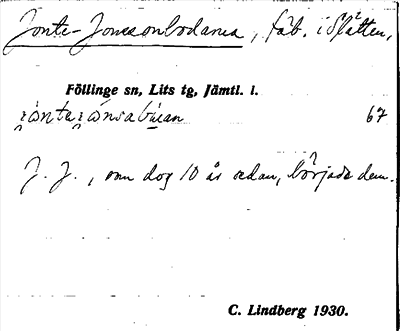 Jonte-Jonsonbodarna, fäb. i Slåtten,
Föllinge sn, Lits tg, Jämtl. l.
67
J. J., som dog 10 år sedan, började dem.
C. Lindberg 1930.